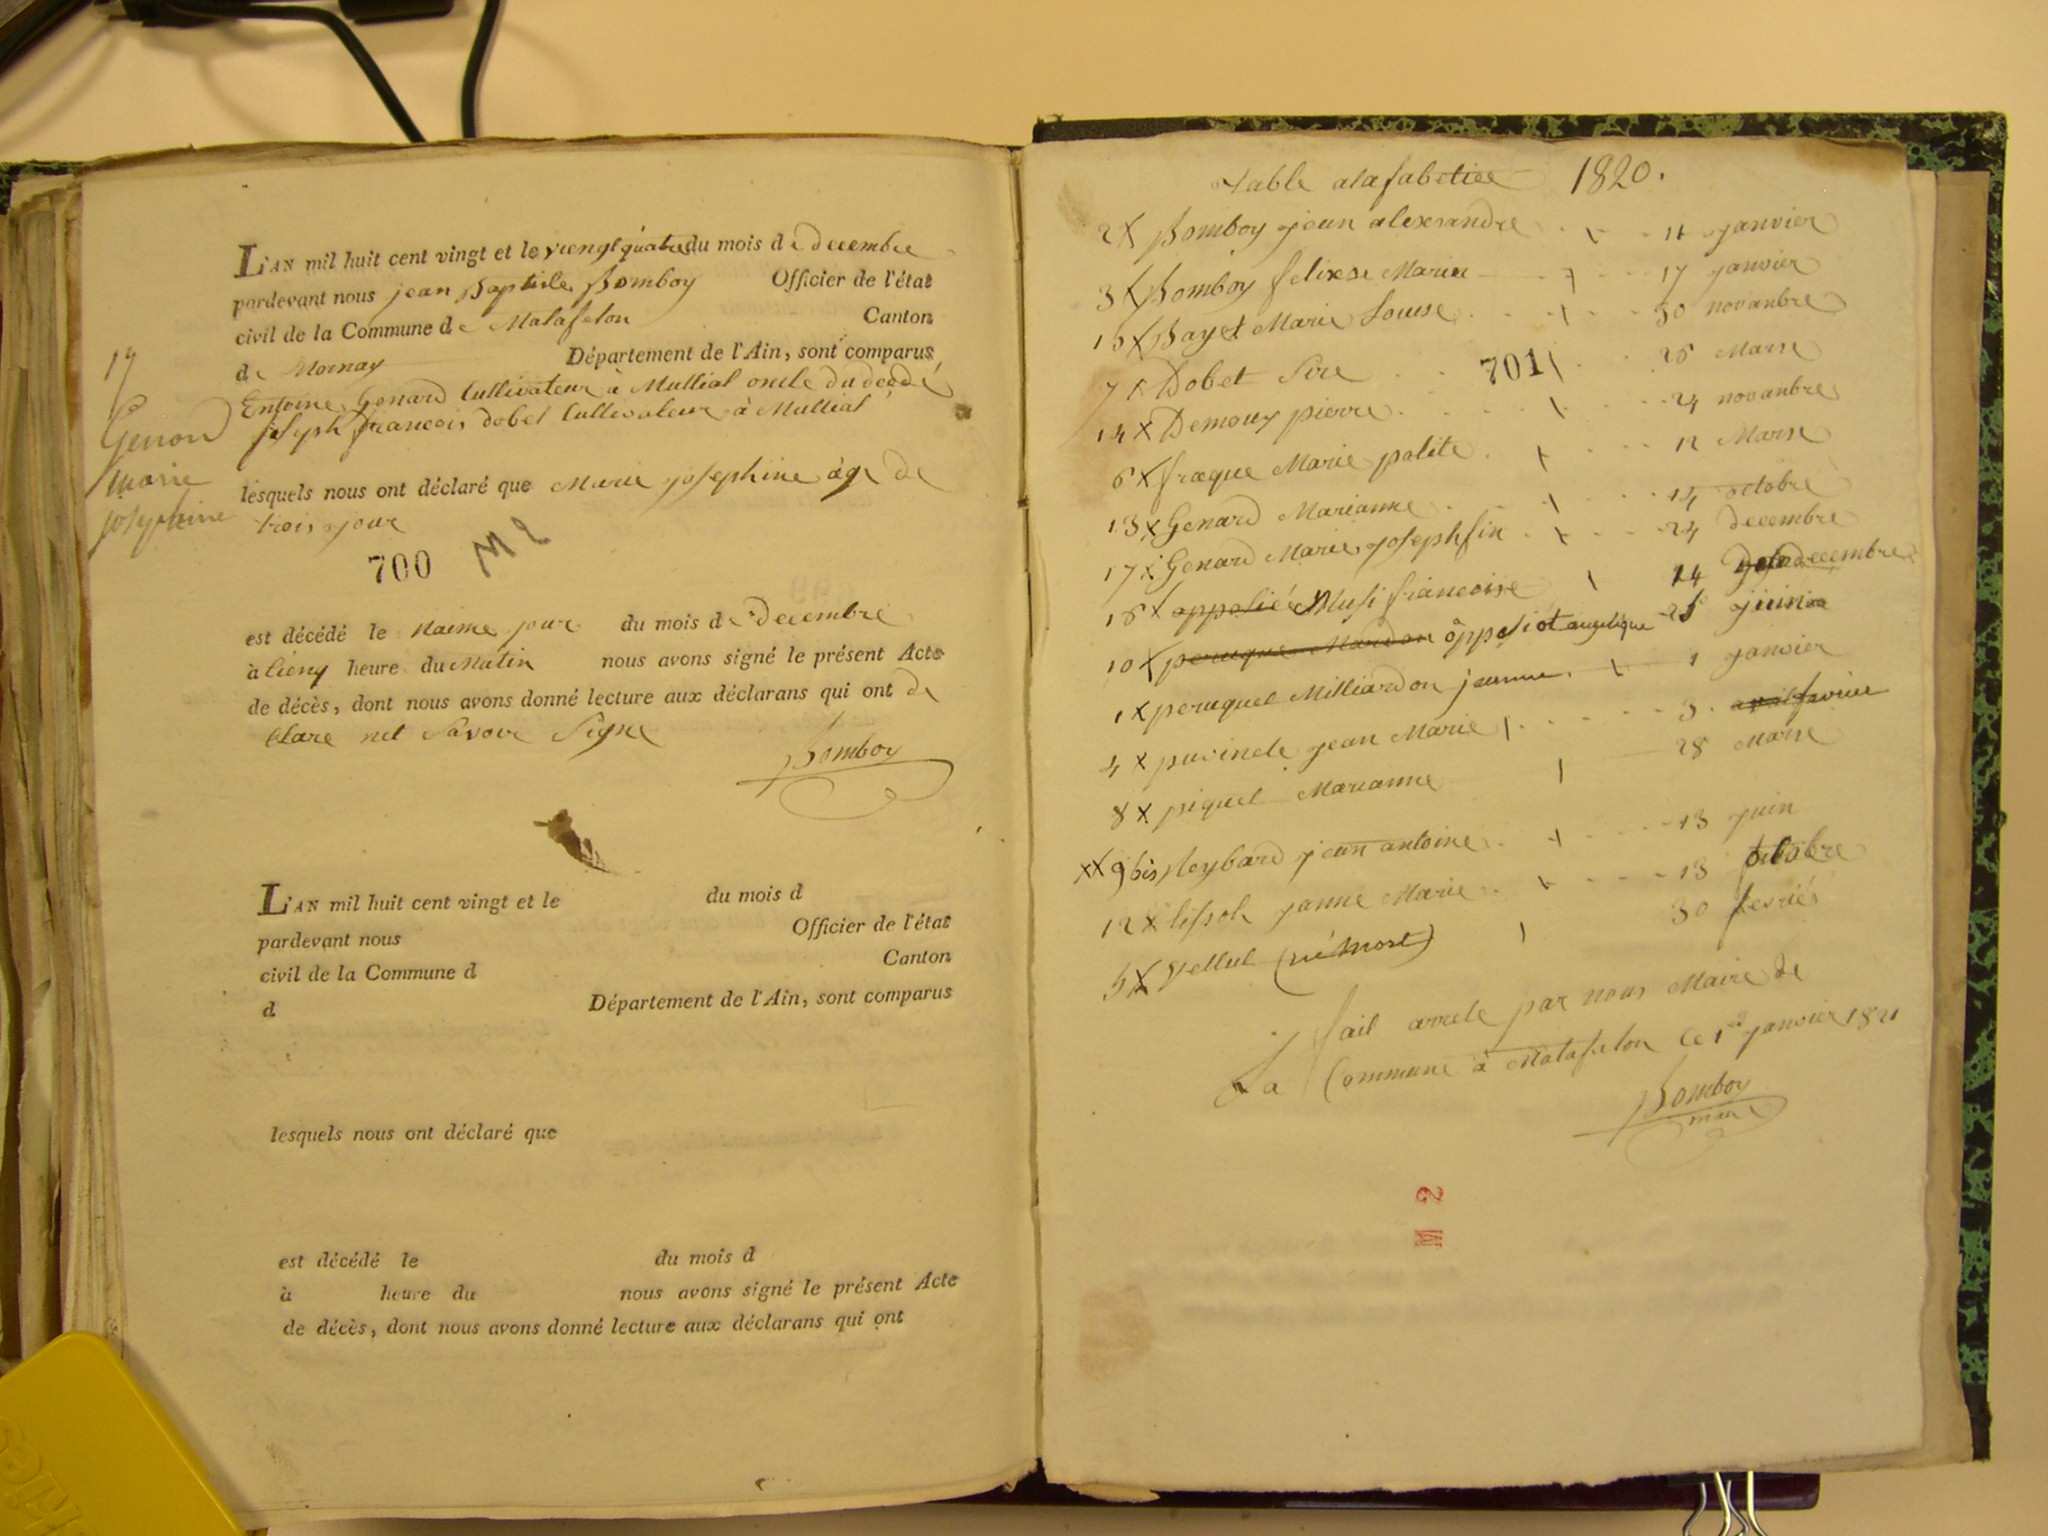 L'AN mil huit cent vingt et le viengtquatre du mois de decembre
pardevant nous jean Baptiste Bomboy Officier de l'état
civil de la Commune de Matafelon Canton
de Mornay Département de l'Ain, sont comparus
Entoine Genard Cultivateur à Mulliat oncle du
joseph francois dobet Cultivateur à Mulliat
17
Genon
marie
josephine
lesquels nous ont déclaré que Marie josephine âge de
trois jour
700 M 2
est décédé le maime jour du mois de decembre
à heure du Matin nous avons signé le présent Acte
de décès, dont nous avons donné lecture aux déclarans qui ont de
Clare net Savoir Signe
Bomboy
L'AN mil huit cent vingt et le du mois d
pardevant nous Officier de l'état
civil de la Commune d Canton
d Département de l'Ain, sont comparus
lesquels nous ont déclaré que
est décédé le du mois d
à heure du nous avons signé le présent Acte
de décès, dont nous avons donné lecture aux déclarans qui ont
Table alafabetice 1820.
2 X Bomboy jean alexsandre 11 janvier
3 X Bomboy felixse Marie 17 janvier
15 X Bayet Marie Louise 30 novanbre
7 X Dobet 701 26 Marse
14 X Demouy pierre 24 novanbre
6 X fraque Marie polite 12 Marse
13 X Genard Marianne 14 octobre
17 X Genard Marie josephfin 24 decembre
16 X Musi francoise 14 decembre
10 X oppeliot angelique 25 juin
1 X peruquet Milliardon jeanne 1 janvier
4 X puvinele jean Marie 3
8 X piquet Marianne 28 Marse
XX 9 bis Reybard jean antoine 13 juin
12 X tissot janne Marie 13 octobre
5 X Vellut (né mort) 30 fevrié
fait arrete par nous Maire de
La Commune à Matafelon Ce 1er janvier 1821
Bomboy
maire
2